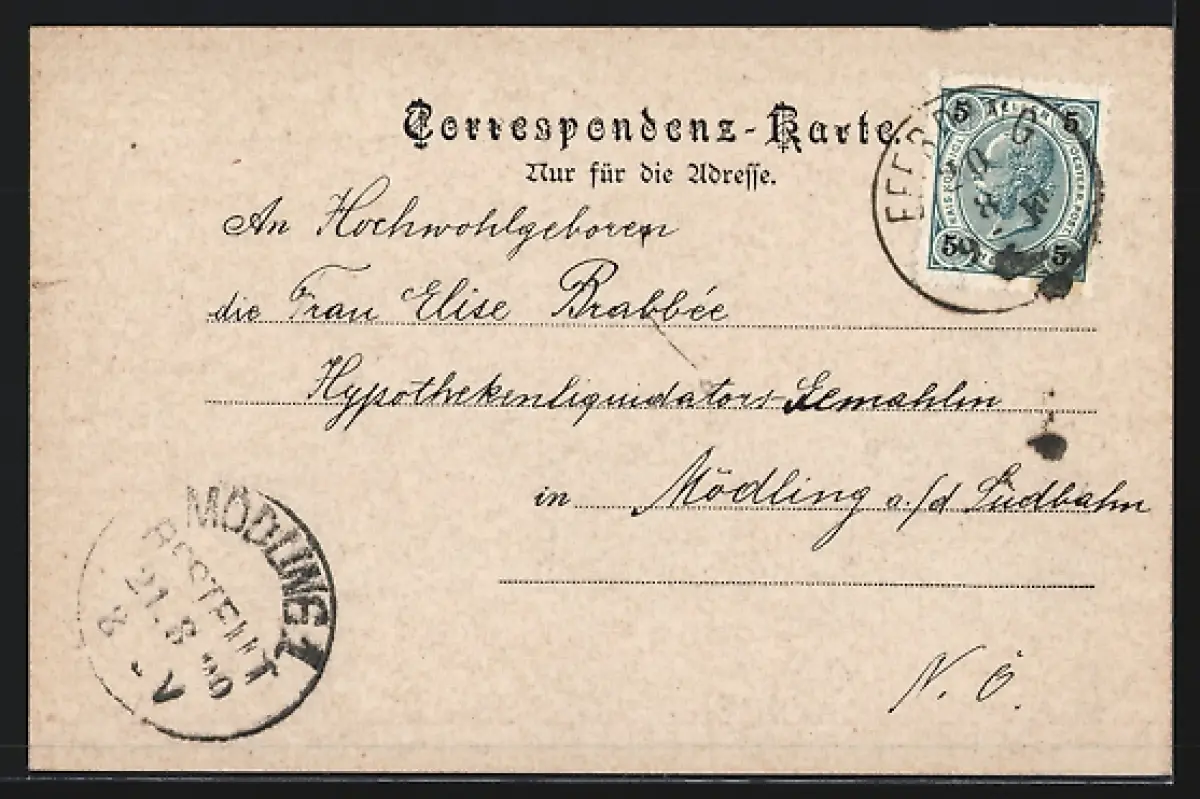 Correspondenz-Karte.
Nur für die Adresse.
5 HELLER 5
5 5
An Hochwohlgeboren
die Frau Elise Brabbée
Hypothekenliquidators-Gemahlin
in Mödling a./d Südbahn
N. Ö.
MÖDLING 1
BESTELLT
21. 8 00
8 - V